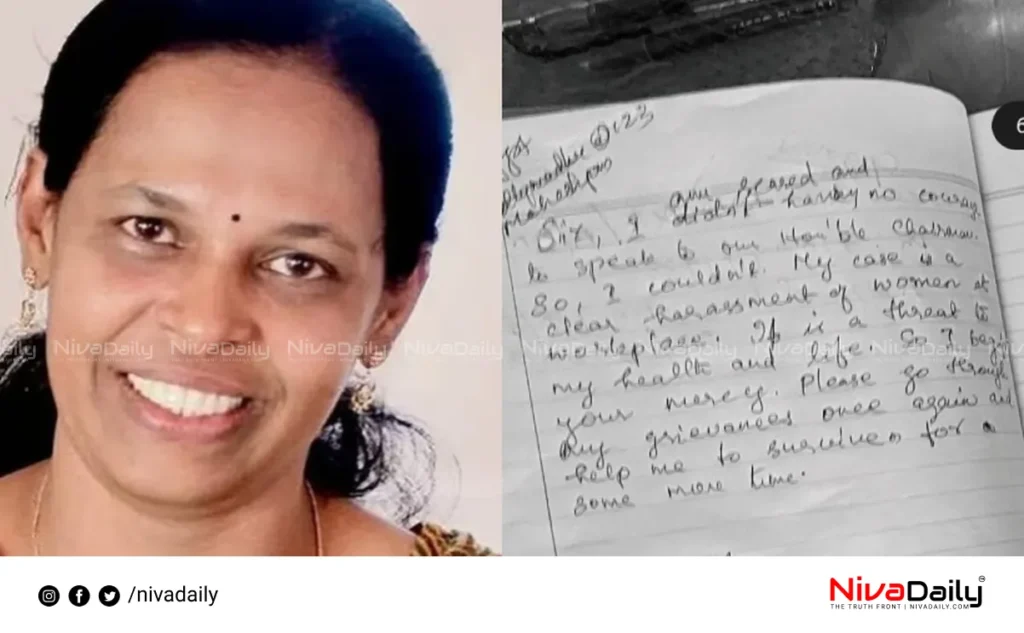 Sir, I am scared and
didn't having no courag.
to speak to our Hon'ble Chairman.
So, I couldn't. My case is a
clear harassment of women at
workplace. It is a threat to
my health and life So I beg
your mercy. Please go through
my grievances once again and
help me to survive for a
some more time.
6
NivaDaily NivaDaily NivaDaily NivaDaily NivaDaily NivaDaily NivaDaily NivaDaily
/nivadaily
NivaDaily
THE TRUTH FRONT | NIVADAILY.COM